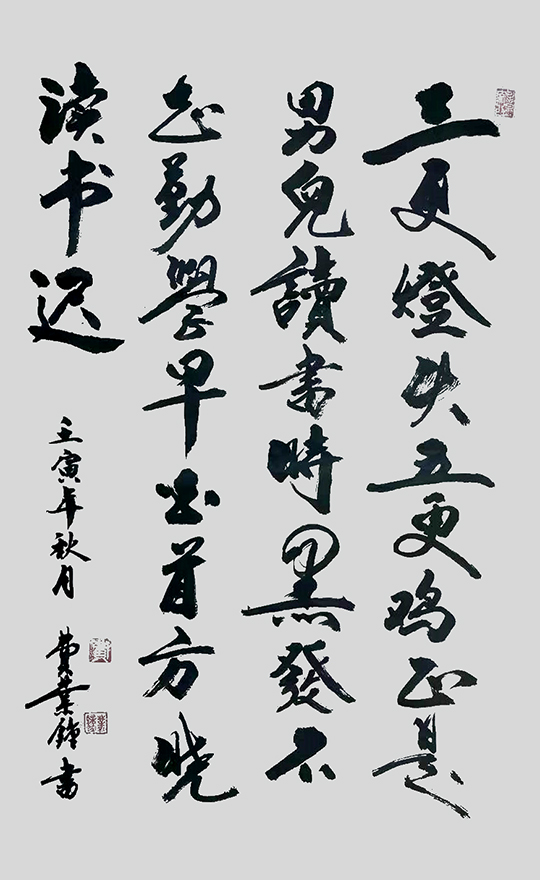 三更燈火五更鸡正是
男兒讀書時黑發不
知勤學早白首方晓
读书迟
壬寅年秋月
費業鐘書